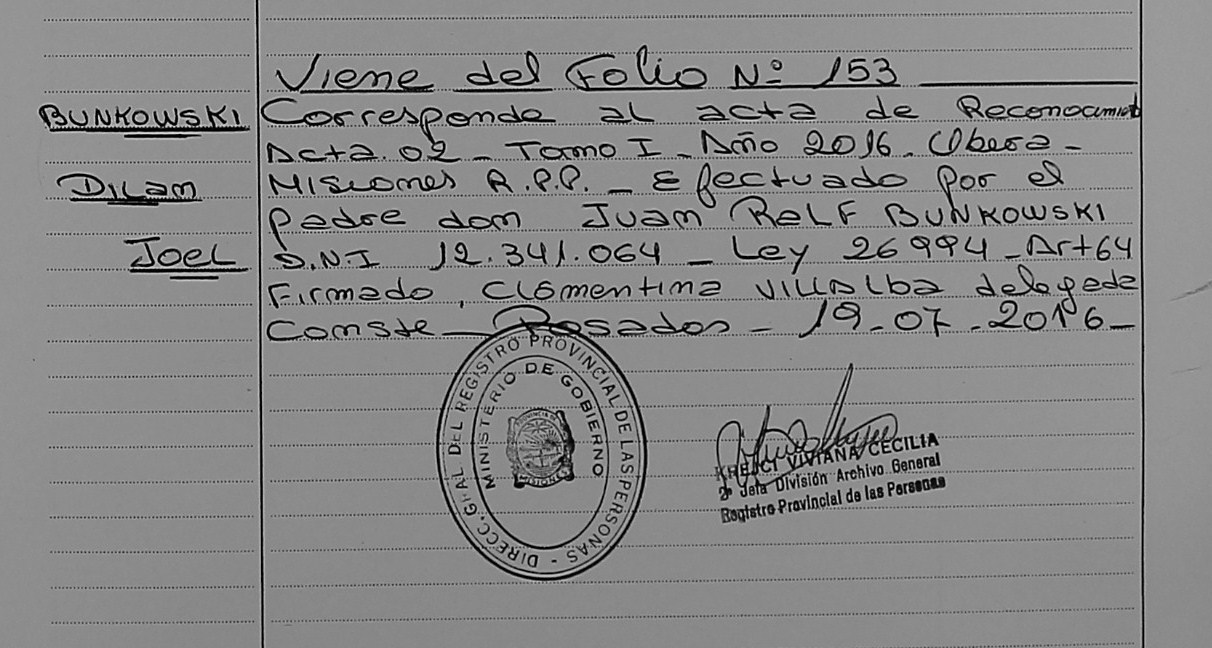 Viene del Folio Nº 153
BUNKOWSKI
Corresponde al acta de Reconocimient
Acta. 02 - Tomo I - Año 2016 - Obera -
DILAN
Misiones R.P.P. - Efectuado por el
padre don Juan RELF BUNKOWSKI
JOEL
D.N.I 12.341.064 - Ley 26994 - Art 64
Firmado, Clementina VILLALba delegada
Conste - Posadas - 19-07-2016 -
DIRECC. GRAL DEL REGISTRO PROVINCIAL DE LAS PERSONAS -
MINISTERIO DE GOBIERNO
KREJCI VIVIANA CECILIA
2º Jefa División Archivo General
Registro Provincial de las Personas